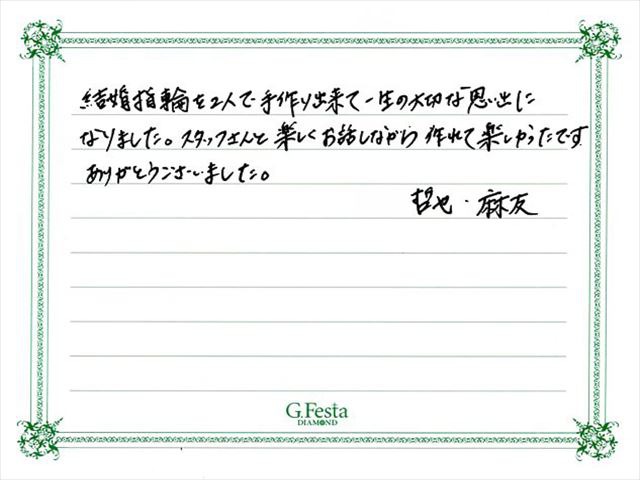 結婚指輪を2人で手作り出来て一生の大切な思い出に
なりました。スタッフさんと楽しくお話しながら作れて楽しかったです
ありがとうございました。
哲也・麻友
G.Festa
DIAMOND